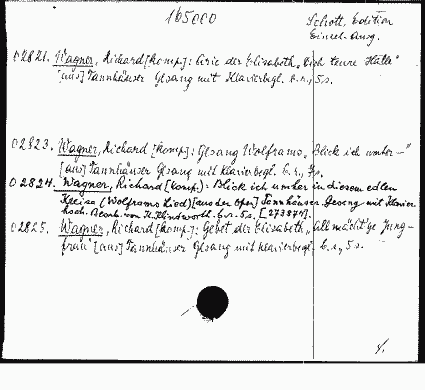 165000
Schott, Edition
Einzel-Ausg.
02821. Wagner, Richard [komp.]: Arie der Elisabeth „Dich teure Halle"
[aus] Tannhäuser Gesang mit Klavierbegl. o. J., 5 s.
02823. Wagner, Richard [komp.]: Gesang Wolframs „Blick ich umher —"
[aus] Tannhäuser Gesang mit Klavierbegl. o. J., 7 s.
02824. Wagner, Richard (komp.): Blick ich umher in diesem edlen
Kreise (Wolframs Lied) [aus der Oper] Tannhäuser. Gesang mit Klavier
hoch. Bearb. von K. Klindworth. o. J. 5 s. [27387
02825. Wagner, Richard [komp.]: Gebet der Elisabeth „Allmächt'ge Jung-
frau" [aus] Tannhäuser Gesang mit Klavierbegl. o. J., 5 s.